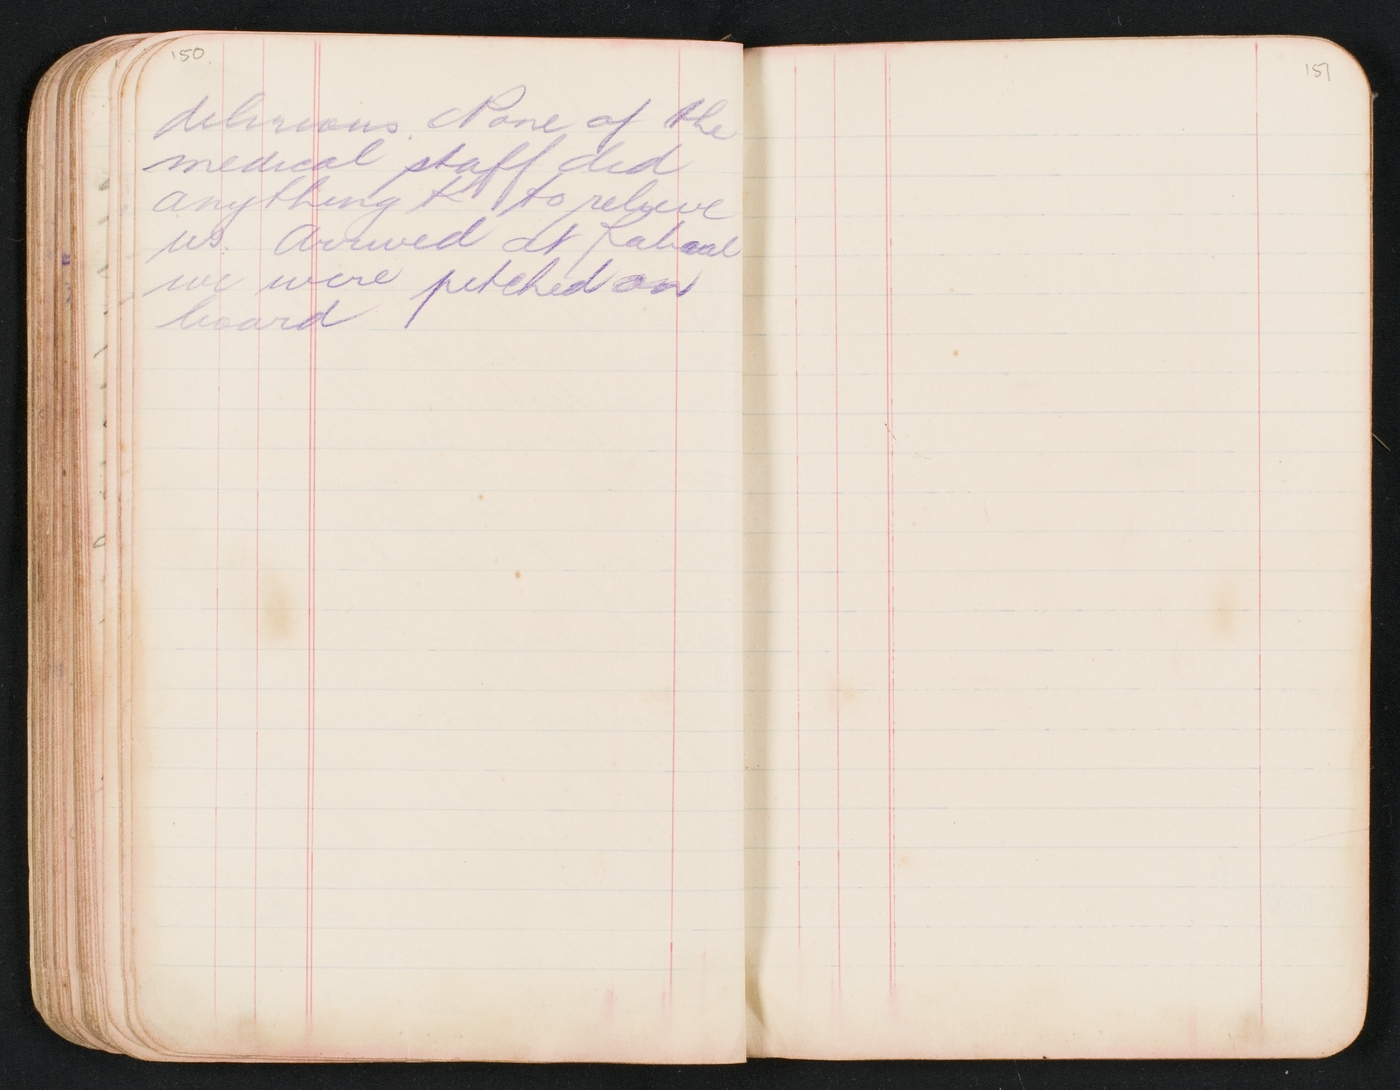 150
delirious. None of the
medical staff did
anything t to relieve
us. Arrived at Rabaul
we were pitched on
board
151